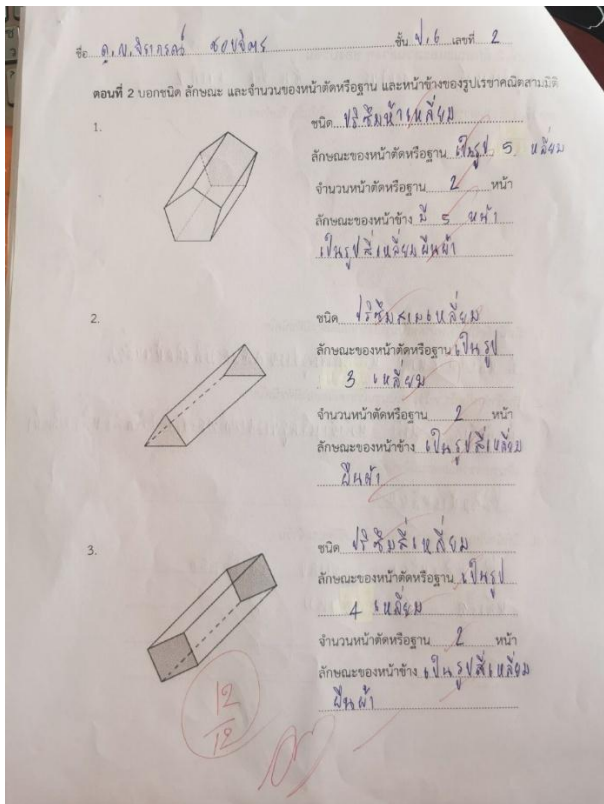 ชื่อ ด.ญ.จิราภรณ์ ชอบจิตร ชั้น ป.6 เลขที่ 2
ตอนที่ 2 บอกชนิด ลักษณะ และจำนวนของหน้าตัดหรือฐาน และหน้าข้างของรูปเรขาคณิตสามมิติ
1. ชนิด ปริซึมห้าเหลี่ยม
ลักษณะของหน้าตัดหรือฐาน เป็นรูป 5 เหลี่ยม
จำนวนหน้าตัดหรือฐาน 2 หน้า
ลักษณะของหน้าข้าง มี 5 หน้า
เป็นรูปสี่เหลี่ยมผืนผ้า
2. ชนิด ปริซึมสามเหลี่ยม
ลักษณะของหน้าตัดหรือฐาน เป็นรูป
3 เหลี่ยม
จำนวนหน้าตัดหรือฐาน 2 หน้า
ลักษณะของหน้าข้าง เป็นรูปสี่เหลี่ยม
ผืนผ้า
3. ชนิด ปริซึมสี่เหลี่ยม
ลักษณะของหน้าตัดหรือฐาน เป็นรูป
4 เหลี่ยม
จำนวนหน้าตัดหรือฐาน 2 หน้า
ลักษณะของหน้าข้าง เป็นรูปสี่เหลี่ยม
ผืนผ้า
12
12